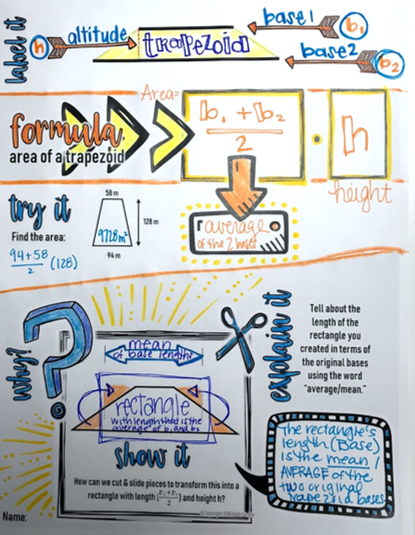 label it
h
altitude
trapezoid
base1
b1
base2
b2
Area=
formula
area of a trapezoid
b1 + b2
2
·
h
height
average
of the 2 bases
try it
Find the area:
94+58
2
(128)
58 m
128 m
9728m²
94 m
why?
?
mean
of base lengths
rectangle
with length that is the
average of b1 and b2
show it
How can we cut & slide pieces to transform this into a
rectangle with length (b1+b2/2) and height h?
explain it
Tell about the
length of the
rectangle you
created in terms of
the original bases
using the word
"average/mean."
The rectangle's
length (Base)
is the mean /
AVERAGE of the
two original
trapezoid bases
Name: